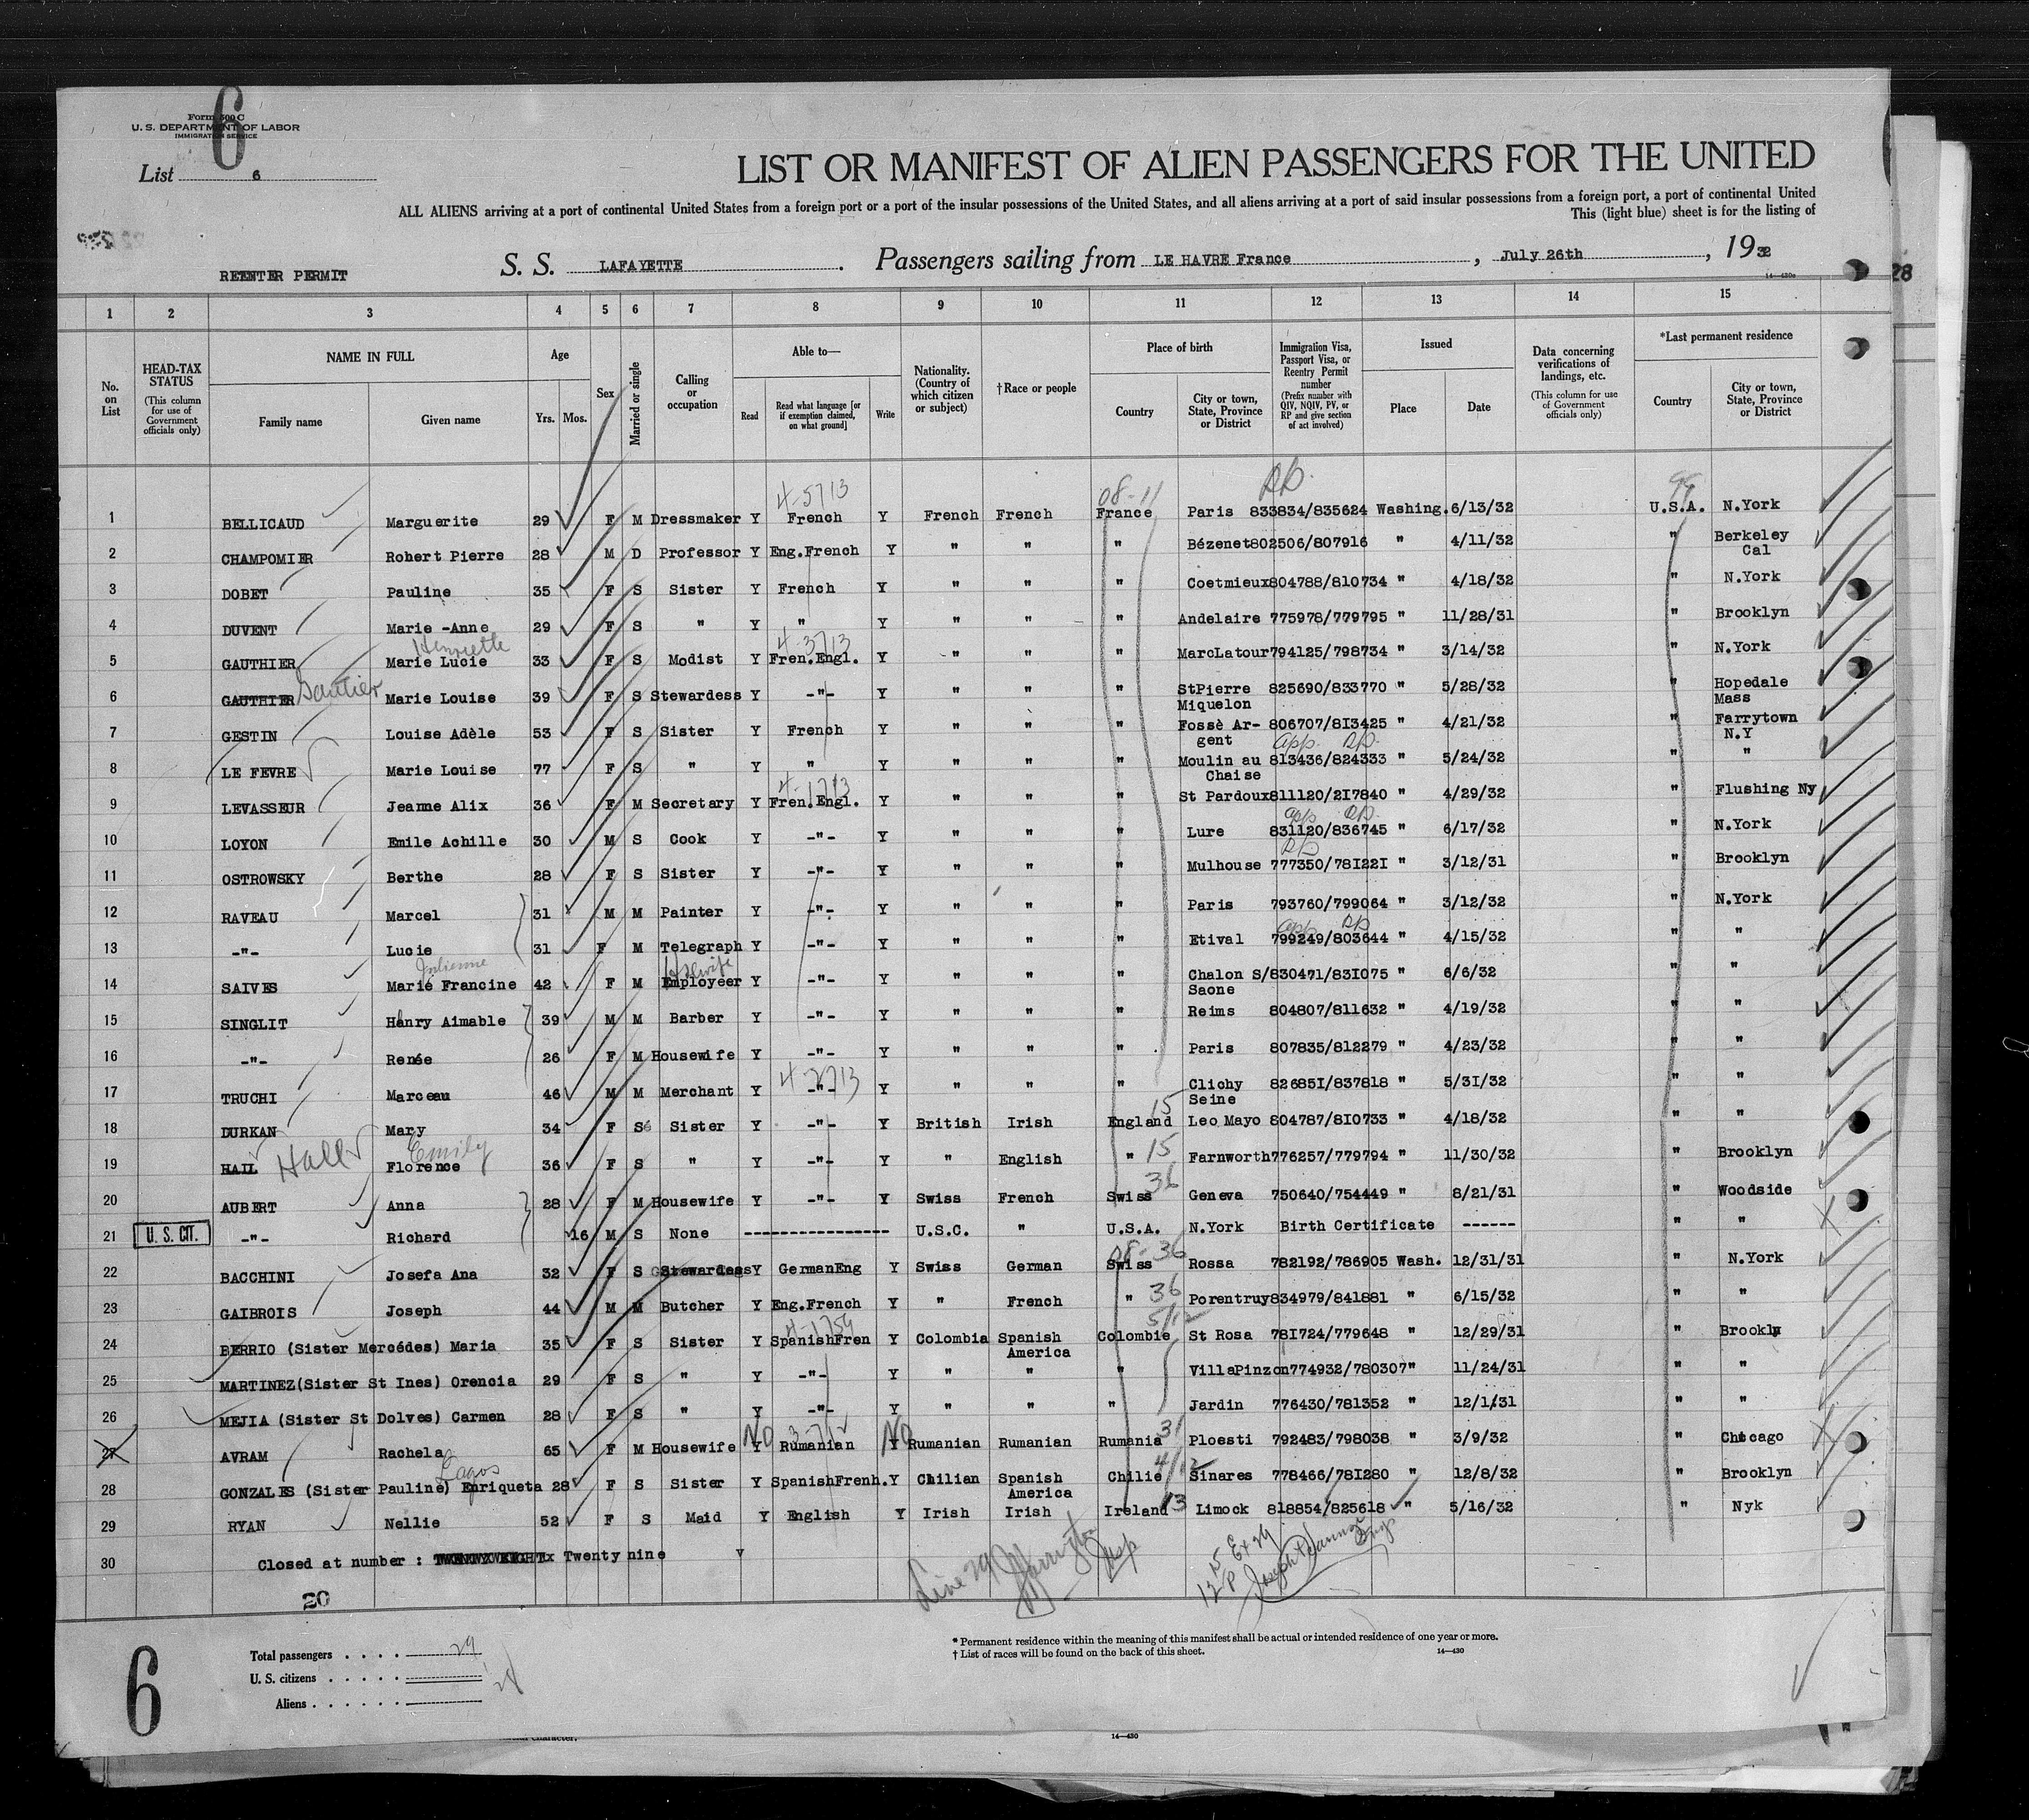 6
Form 500 C
U. S. DEPARTMENT OF LABOR
IMMIGRATION SERVICE
List 6
LIST OR MANIFEST OF ALIEN PASSENGERS FOR THE UNITED
ALL ALIENS arriving at a port of continental United States from a foreign port or a port of the insular possessions of the United States, and all aliens arriving at a port of said insular possessions from a foreign port, a port of continental United
This (light blue) sheet is for the listing of
REENTER PERMIT S. S. LAFAYETTE. Passengers sailing from LE HAVRE France, July 26th, 1932
14—430c
28
1 2 3 4 5 6 7 8 9 10 11 12 13 14 15
No. on List
HEAD-TAX STATUS (This column for use of Government officials only)
NAME IN FULL
Family name Given name
Age
Yrs. Mos.
Sex
Married or single
Calling or occupation
Able to—
Read Read what language [or if exemption claimed, on what ground] Write
Nationality. (Country of which citizen or subject)
†Race or people
Place of birth
Country City or town, State, Province or District
Immigration Visa, Passport Visa, or Reentry Permit number (Prefix number with QIV, NQIV, PV, or RP and give section of act involved)
Issued
Place Date
Data concerning verifications of landings, etc. (This column for use of Government officials only)
*Last permanent residence
Country City or town, State, Province or District
4-5713 08-11 99
1 BELLICAUD Marguerite 29 F M Dressmaker Y French Y French French France Paris 833834/835624 Washing. 6/13/32 U.S.A. N.York
2 CHAMPOMIER Robert Pierre 28 M D Professor Y Eng.French Y " " " Bézenet 802506/807916 " 4/11/32 " Berkeley Cal
3 DOBET Pauline 35 F S Sister Y French Y " " " Coetmieux 804788/810734 " 4/18/32 " N.York
4 DUVENT Marie -Anne 29 F S " Y " Y " " " Andelaire 775978/779795 " 11/28/31 " Brooklyn
Henriette 4-3713
5 GAUTHIER Marie Lucie 33 F S Modist Y Fren.Engl. Y " " " MarcLatour 794125/798734 " 3/14/32 " N.York
6 GAUTHIER Gautier Marie Louise 39 F S Stewardess Y -"- Y " " " StPierre Miquelon 825690/833770 " 5/28/32 " Hopedale Mass
7 GESTIN Louise Adèle 53 F S Sister Y French Y " " " Fossè Argent 806707/813425 " 4/21/32 " Farrytown N.Y
app.
8 LE FEVRE Marie Louise 77 F S " Y " Y " " " Moulin au Chaise 813436/824333 " 5/24/32 " "
4-1713
9 LEVASSEUR Jeanne Alix 36 F M Secretary Y Fren.Engl. Y " " " St Pardoux 811120/217840 " 4/29/32 " Flushing Ny
app
10 LOYON Emile Achille 30 M S Cook Y -"- Y " " " Lure 831120/836745 " 6/17/32 " N.York
11 OSTROWSKY Berthe 28 F S Sister Y -"- Y " " " Mulhouse 777350/781221 " 3/12/31 " Brooklyn
12 RAVEAU Marcel 31 M M Painter Y -"- Y " " " Paris 793760/799064 " 3/12/32 " N.York
app
13 -"- Lucie 31 F M Telegraph Y -"- Y " " " Etival 799249/803644 " 4/15/32 " "
Julienne Hswife
14 SAIVES Marie Francine 42 F M Employeer Y -"- Y " " " Chalon S/Saone 830471/831075 " 6/6/32 " "
15 SINGLIT Henry Aimable 39 M M Barber Y -"- Y " " " Reims 804807/811632 " 4/19/32 " "
16 -"- Renée 26 F M Housewife Y -"- Y " " " Paris 807835/812279 " 4/23/32 " "
17 TRUCHI Marceau 46 M M Merchant Y -"- Y " " " Clichy Seine 826851/837818 " 5/31/32 " "
15
18 DURKAN Mary 34 F S Sister Y -"- Y British Irish England Leo Mayo 804787/810733 " 4/18/32 " "
Emily
19 HAIL Hall Florence 36 F S " Y -"- Y " English " 15 Farnworth 776257/779794 " 11/30/32 " Brooklyn
36
20 AUBERT Anna 28 F M Housewife Y -"- Y Swiss French Swiss Geneva 750640/754449 " 8/21/31 " Woodside
21 U. S. CIT. -"- Richard 16 M S None ---------------- U.S.C. " U.S.A. N.York Birth Certificate ------ " "
08-36
22 BACCHINI Josefa Ana 32 F S Stewardess Y GermanEng Y Swiss German Swiss Rossa 782192/786905 Wash. 12/31/31 " N.York
23 GAIBROIS Joseph 44 M M Butcher Y Eng.French Y " French " 36 Porentruy 834979/841881 " 6/15/32 " "
4-1759 5/12
24 BERRIO (Sister Mercédes) Maria 35 F S Sister Y SpanishFren Y Colombia Spanish America Colombie St Rosa 781724/779648 " 12/29/31 " Brookly
25 MARTINEZ(Sister St Ines) Orencia 29 F S " Y -"- Y " " " VillaPinzon 774932/780307 " 11/24/31 " "
26 MEJIA (Sister St Dolves) Carmen 28 F S " Y -"- Y " " " Jardin 776430/781352 " 12/1/31 " "
No No 31
27 AVRAM Rachela 65 F M Housewife Y Rumanian Y Rumanian Rumanian Rumania Ploesti 792483/798038 " 3/9/32 " Chicago
Lagos 4/12
28 GONZALES (Sister Pauline) Enriqueta 28 F S Sister Y SpanishFrenh. Y Chilian Spanish America Chilie Sinares 778466/781280 " 12/8/32 " Brooklyn
29 RYAN Nellie 52 F S Maid Y English Y Irish Irish Ireland 13 Limock 818854/825618 " 5/16/32 " Nyk
30 Closed at number : TWENTY EIGHTx Twenty nine
Line 29 Insp
20
Total passengers . . . . 29
U. S. citizens . . . . .
Aliens . . . . . .
6
* Permanent residence within the meaning of this manifest shall be actual or intended residence of one year or more.
† List of races will be found on the back of this sheet.
14—430
14—430